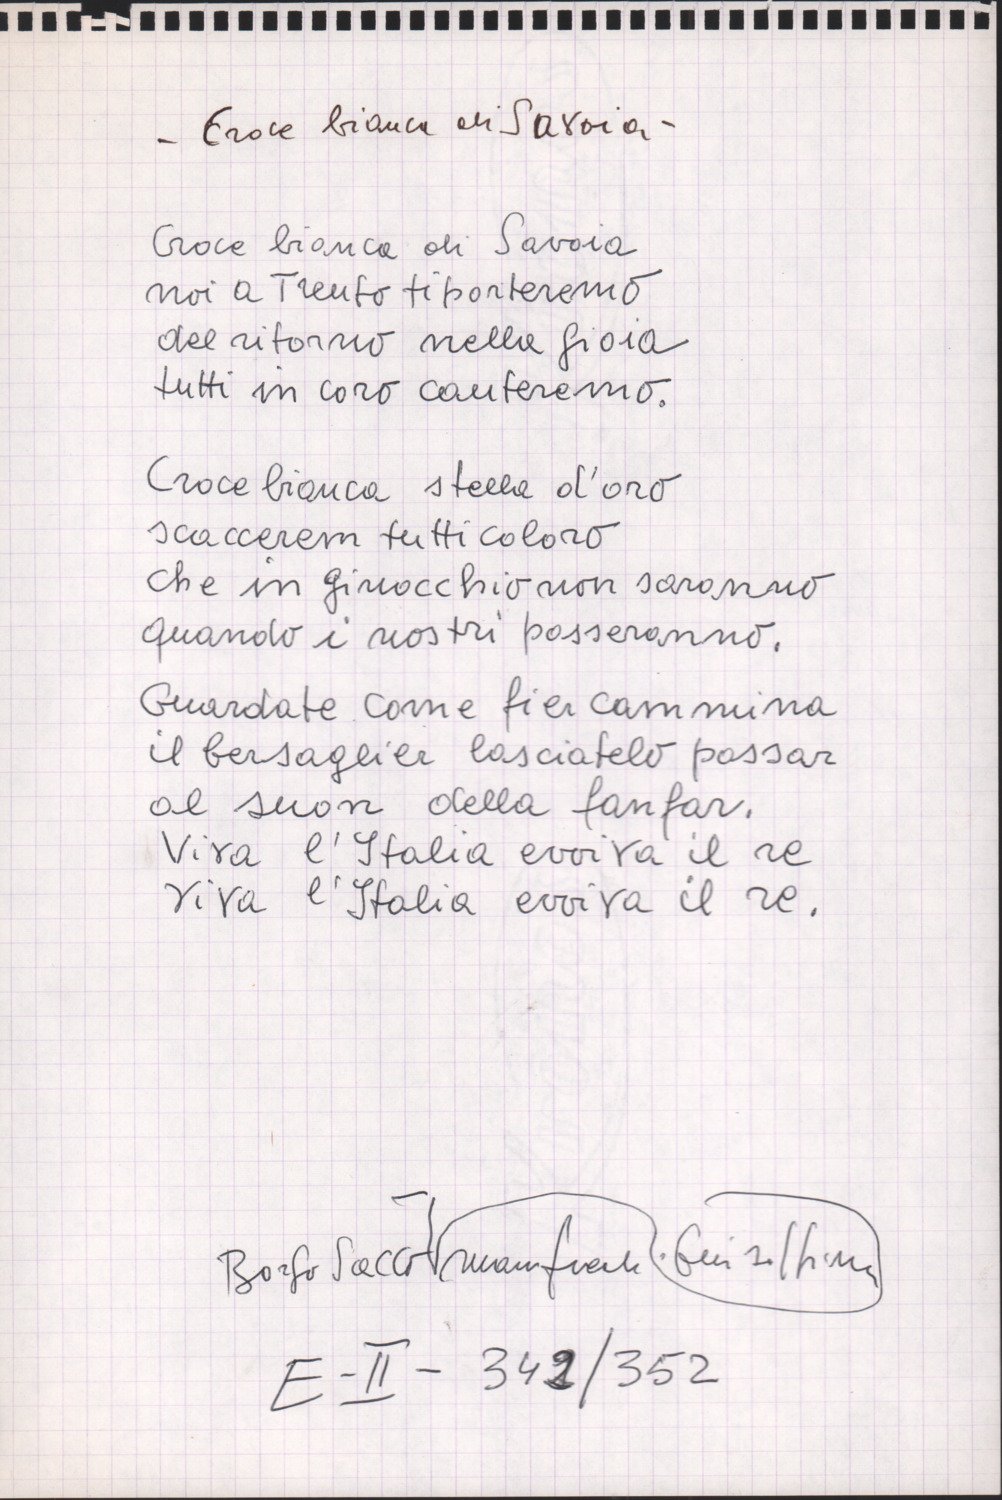 - Croce bianca di Savoia -
Croce bianca di Savoia
noi a Trento ti porteremo
del ritorno nella gioia
tutti in coro canteremo.
Croce bianca stella d'oro
scaccerem tutti coloro
che in ginocchio non saranno
quando i nostri passeranno.
Guardate come fier cammina
il bersaglier lasciatelo passar
al suon della fanfar.
Viva l'Italia evviva il re
viva l'Italia evviva il re.
Borgo Sacco
E-II- 342/352